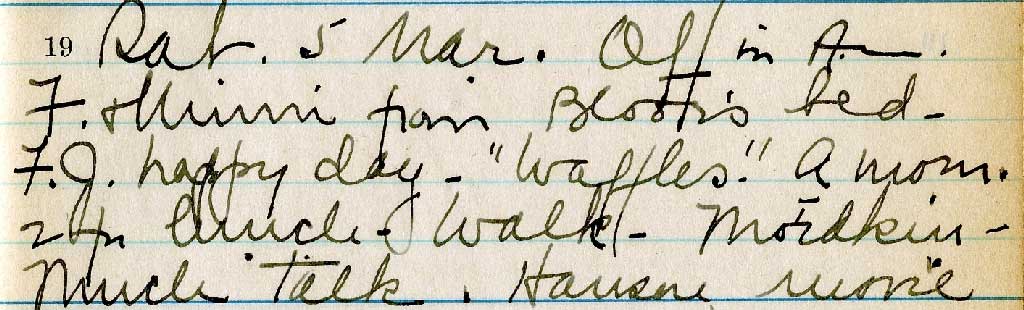 19 Sat. 5 Mar. Off in A.M.
F. & Mimi pain Bed-
F.J. happy day - "Waffles!" A mom.
lunch - Walk - Mordkin -
Much talk. movie